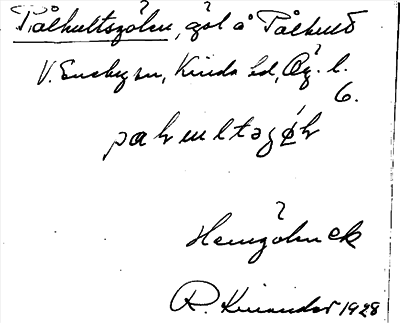 Påhultsgölen, göl å Påhult
V. Eneby sn, Kinda hd, Ög. l.
6.
Hemgöln ck
R. Kinander 1928